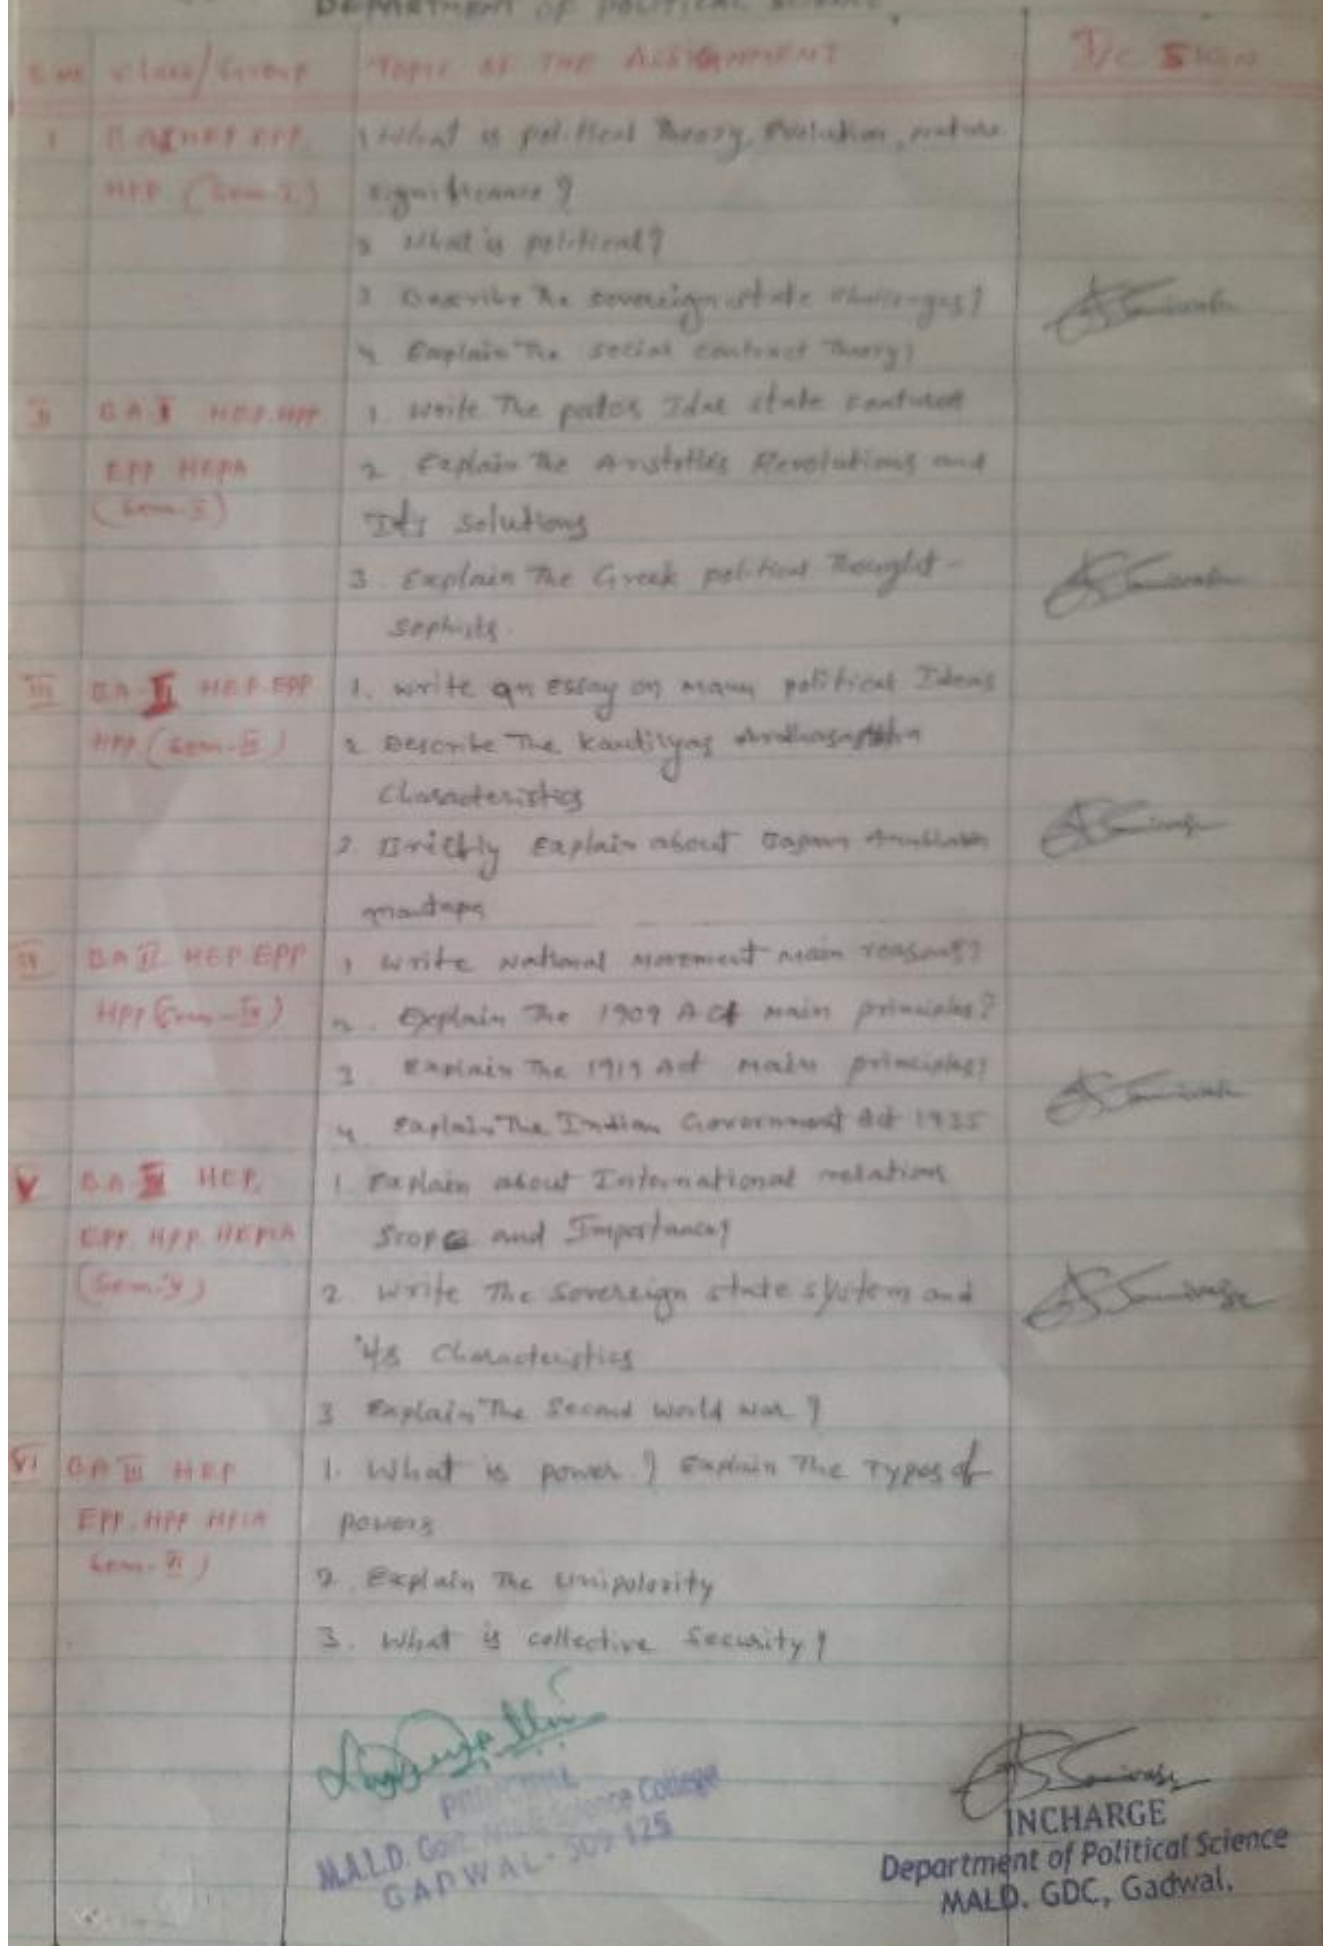 DEPARTMENT OF POLITICAL SCIENCE
S.No Class/Group TOPIC OF THE ASSIGNMENT I/C SIGN
1 B.A I HEP EPP 1 What is political Theory, Evolution, nature
HPP (Sem-I) significance?
2 What is political?
3 Describe The sovereign state challenges?
4 Explain The social contract Theory?
II B.A-I HEP.HPP 1. Write The patos Idae state features
EPP HEPA 2 Explain The Aristotles Revolutions and
(Sem-II) Its solutions
3. Explain The Greek political Thought -
Sophists.
III BA-II HEP.EPP 1. Write an Essay on manu political Ideas
HPP (Sem-III) 2 Describe The Kautilyas
Characteristics
3. Briefly Explain about
IV BA II HEP EPP 1 Write National Movement main reasons?
HPP (Sem-IV) 2. Explain The 1909 Act main principles?
3 Explain The 1919 Act main principles?
4 Explain The Indian Government Act 1935
V BA III HEP, 1. Explain about International relations
EPP. HPP. Scope and Importance?
(Sem-V) 2. Write The Sovereign state system and
its Characteristics
3 Explain The Second World War ?
VI BA III HEP 1. What is power ? Explain The Types of
EPP. HPP powers
Sem-VI) 2. Explain The Unipolority
3. What is collective Security?
PRINCIPAL
M.A.L.D. Govt. Science College
GADWAL - 509 125
INCHARGE
Department of Political Science
MALD. GDC, Gadwal.